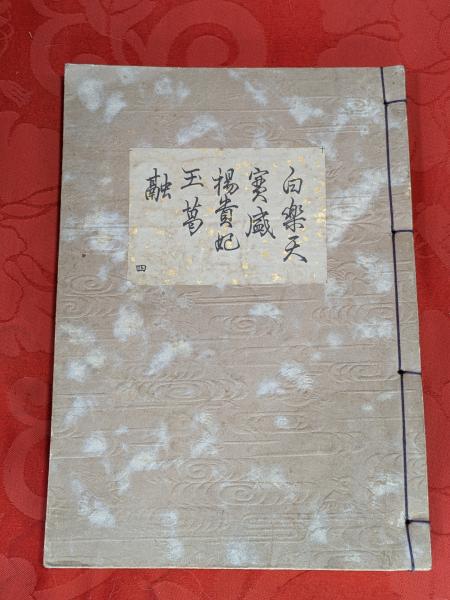 白樂天
實盛
楊貴妃
玉葛
融
四